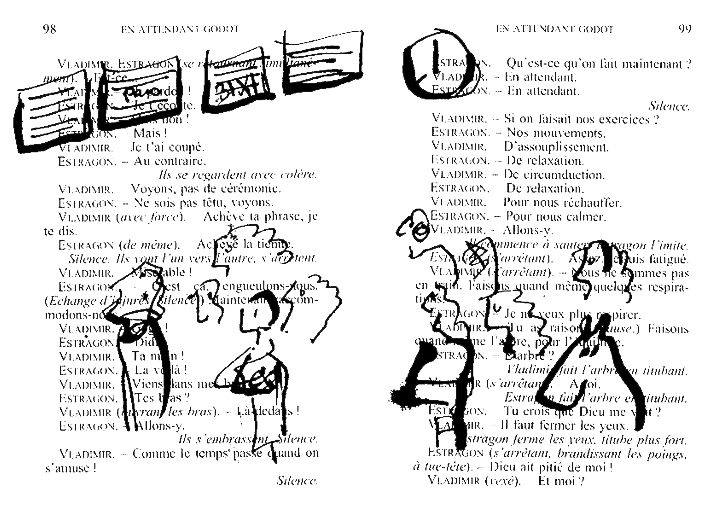 98 EN ATTENDANT GODOT
VLADIMIR, ESTRAGON (se retournant
Mais !
VLADIMIR. Je t'ai coupé.
ESTRAGON. – Au contraire.
Ils se regardent avec colère.
VLADIMIR. Voyons, pas de cérémonie.
ESTRAGON. – Ne sois pas têtu, voyons.
VLADIMIR (avec force). Achève ta phrase, je
te dis.
ESTRAGON (de même). Achève la tienne.
Silence. Ils vont l'un vers l'autre, s'arrêtent.
VLADIMIR. Misérable !
ESTRAGON. ça, engueulons-nous.
(Echange d'injures. Silence.) Maintenant
VLADIMIR.
ESTRAGON.
VLADIMIR. Ta main !
ESTRAGON. La voilà !
VLADIMIR. Viens dans mes
ESTRAGON. Tes bras ?
VLADIMIR (ouvrant les bras). – Là-dedans !
ESTRAGON. – Allons-y.
Ils s'embrassent. Silence.
VLADIMIR. – Comme le temps passe quand on
s'amuse !
Silence.
EN ATTENDANT GODOT 99
ESTRAGON. Qu'est-ce qu'on fait maintenant ?
VLADIMIR. – En attendant.
ESTRAGON. – En attendant.
Silence.
VLADIMIR. – Si on faisait nos exercices ?
ESTRAGON. – Nos mouvements.
VLADIMIR. D'assouplissement.
ESTRAGON. – De relaxation.
VLADIMIR. – De circumduction.
ESTRAGON. De relaxation.
VLADIMIR. Pour nous réchauffer.
ESTRAGON. – Pour nous calmer.
VLADIMIR. – Allons-y.
commence à sauter. Estragon l'imite.
ESTRAGON (s'arrêtant). Assez. Je suis fatigué.
VLADIMIR (s'arrêtant). – Nous ne sommes pas
en train. Faisons quand même quelques respira-
tions.
ESTRAGON. – Je ne veux plus respirer.
VLADIMIR. – Tu as raison. (Pause.) Faisons
quand même l'arbre, pour l'équilibre.
ESTRAGON. – L'arbre ?
Vladimir fait l'arbre en titubant.
VLADIMIR (s'arrêtant). A toi.
Estragon fait l'arbre en titubant.
ESTRAGON. Tu crois que Dieu me voit ?
VLADIMIR. – Il faut fermer les yeux.
Estragon ferme les yeux, titube plus fort.
ESTRAGON (s'arrêtant, brandissant les poings,
à tue-tête). – Dieu ait pitié de moi !
VLADIMIR (vexé). Et moi ?